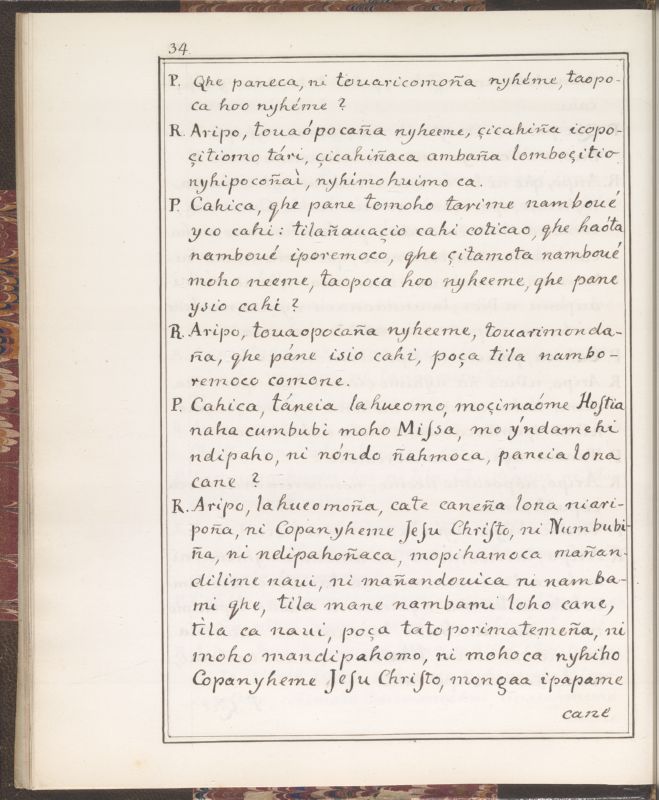 34
P. Qhe paneca, ni touaricomoña nyhéme, taopo-
ca hoo nyhéme ?
R. Aripo, touaópocaña nyheeme, çicahiña icopo-
çitiomo tári, çicahiñaca ambaña lomboçitio
nyhipocoñaì, nyhimohuimo ca.
P. Cahica, qhe pane tomoho tarime namboué
yco cahi: tilañauaçio cahi coticao, qhe haóta
namboué iporemoco, qhe çitamota namboué
moho neeme, taopoca hoo nyheeme, qhe pane
ysio cahi ?
R. Aripo, touaopocaña nyheeme, touarimonda-
ña, qhe páne isio cahi, poça tila nambo-
remoco comone.
P. Cahica, táneia lahueomo, moçimaóme Hoſtia
naha cumbubi moho Miſsa, mo ýndamehi
ndipaho, ni nóndo ñahmoca, paneia lona
cane ?
R. Aripo, lahueomoña, cate caneña lona niari-
poña, ni Copanyheme Jeſu Chriſto, ni Numbubi-
ña, ni ndipahoñaca, mopihamoca mañan-
dilime naui, ni mañandouica ni namba-
mi qhe, tila mane nambami loho cane,
tìla ca naui, poça tatoporimatemeña, ni
moho mandipahomo, ni mohoca nyhiho
Copanyheme Jeſu Chriſto, mongaa ipapame
cane